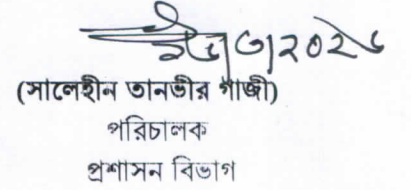 (সালেহীন তানভীর গাজী)
পরিচালক
প্রশাসন বিভাগ